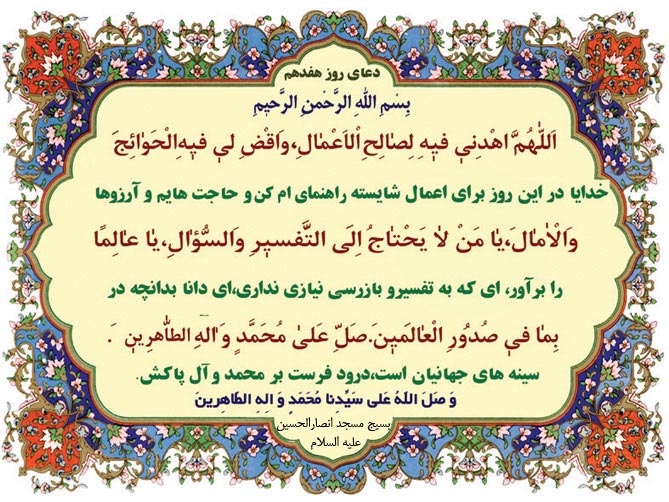 دعای روز هفدهم
بِسْمِ اللهِ الرَّحْمنِ الرَّحیمِ
اَللّهُمَّ اهْدِنی فیهِ لِصالِحِ الْاَعْمالِ،وَاقْضِ لی فیهِ الْحَوائِجَ
خدایا در این روز برای اعمال شایسته راهنمای ام کن و حاجت هایم و آرزوها
وَالْامالَ،یا مَنْ لا یَحْتاجُ اِلَی التَّفسیرِ وَالسُّؤالِ،یا عالِمًا
را برآور، ای که به تفسیرو بازرسی نیازی نداری،ای دانا بدانچه در
بِما فی صُدُورِ الْعالَمینَ.صَلِّ عَلیٰ مُحَمَّدٍ وَ الهِ الطّاهِرینَ .
سینه های جهانیان است،درود فرست بر محمد و آل پاکش.
وَ صَلَ اللهُ عَلی سَیِّدنا مُحَمَد وَ الِهِ الطاهِرینَ
بسیج مسجد انصارالحسین
علیه السلام